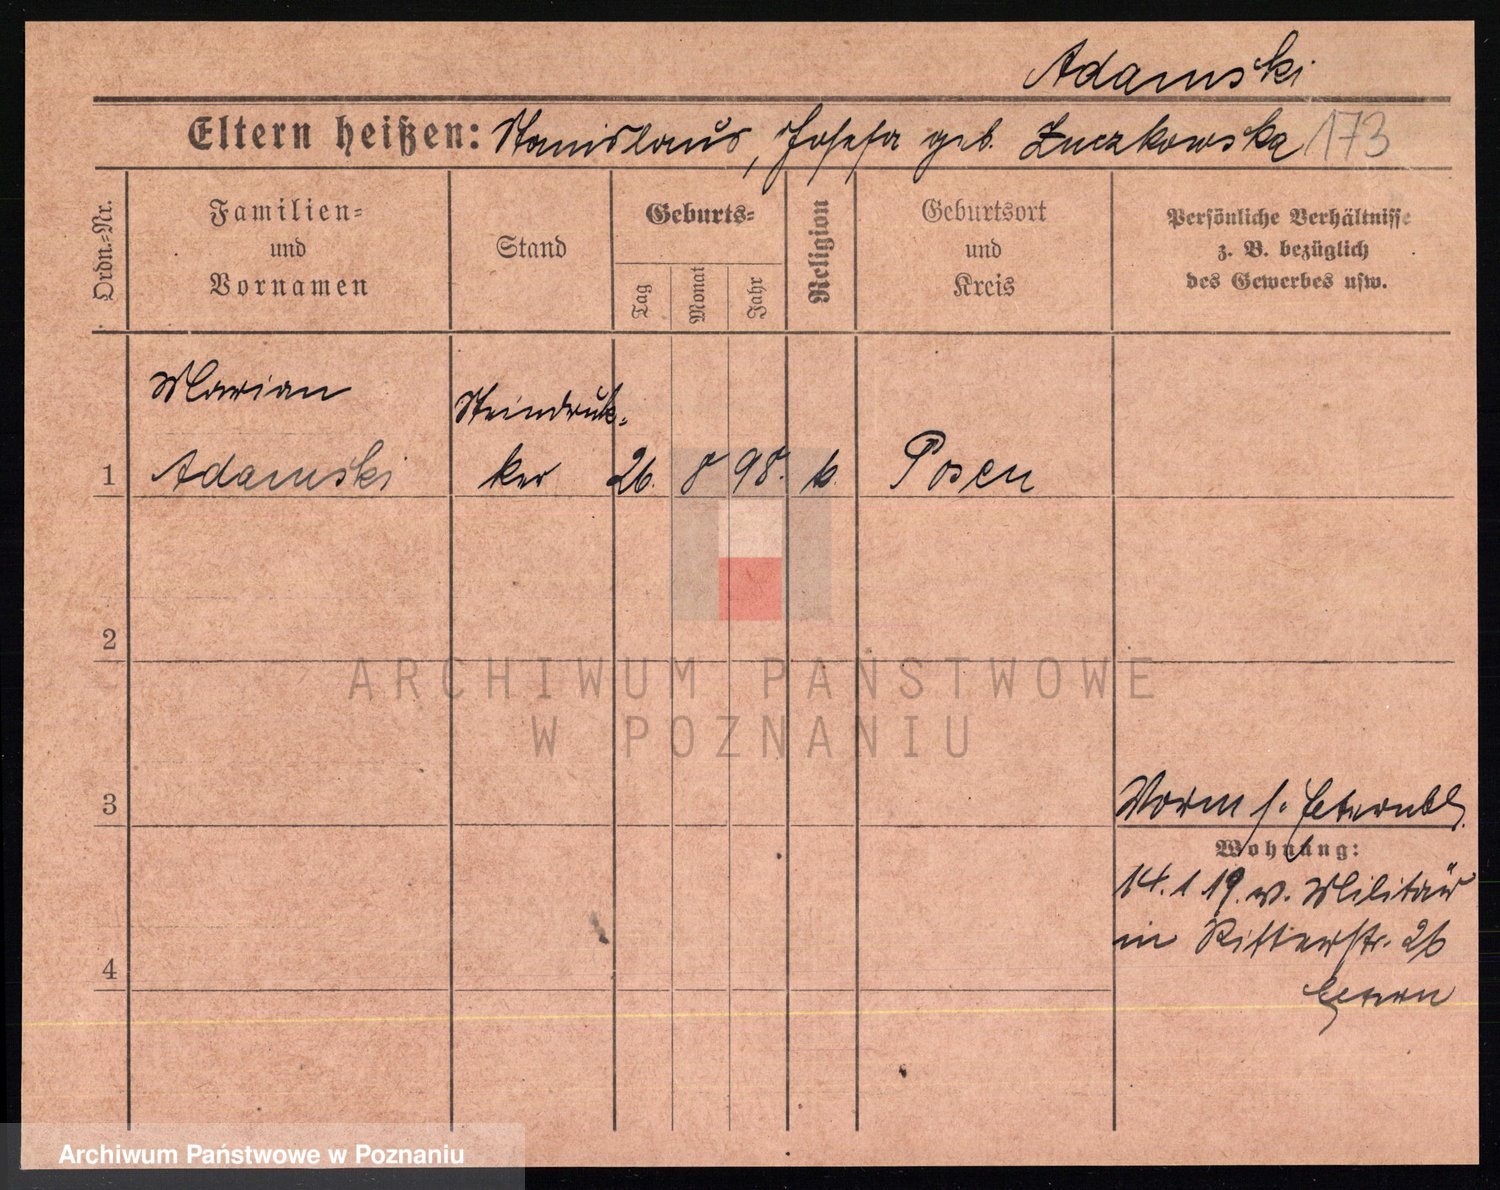 Adamski
Eltern heißen: Stanislaus, Josefa geb. Zuczkowska 173
Ordn.=Nr.
Familien=
und
Vornamen
Stand
Geburts=
Tag
Monat
Jahr
Religion
Geburtsort
und
Kreis
Persönliche Verhältnisse
z. B. bezüglich
des Gewerbes usw.
Marian
Steindruk-
1 Adamski ker 26. 8 98. k. Posen
2
3
Vorm s. Elternbl.
Wohnung:
14. 1 19. v. Militär
in Ritterstr. 26
4
Eltern
ARCHIWUM PAŃSTWOWE
W POZNANIU
Archiwum Państwowe w Poznaniu